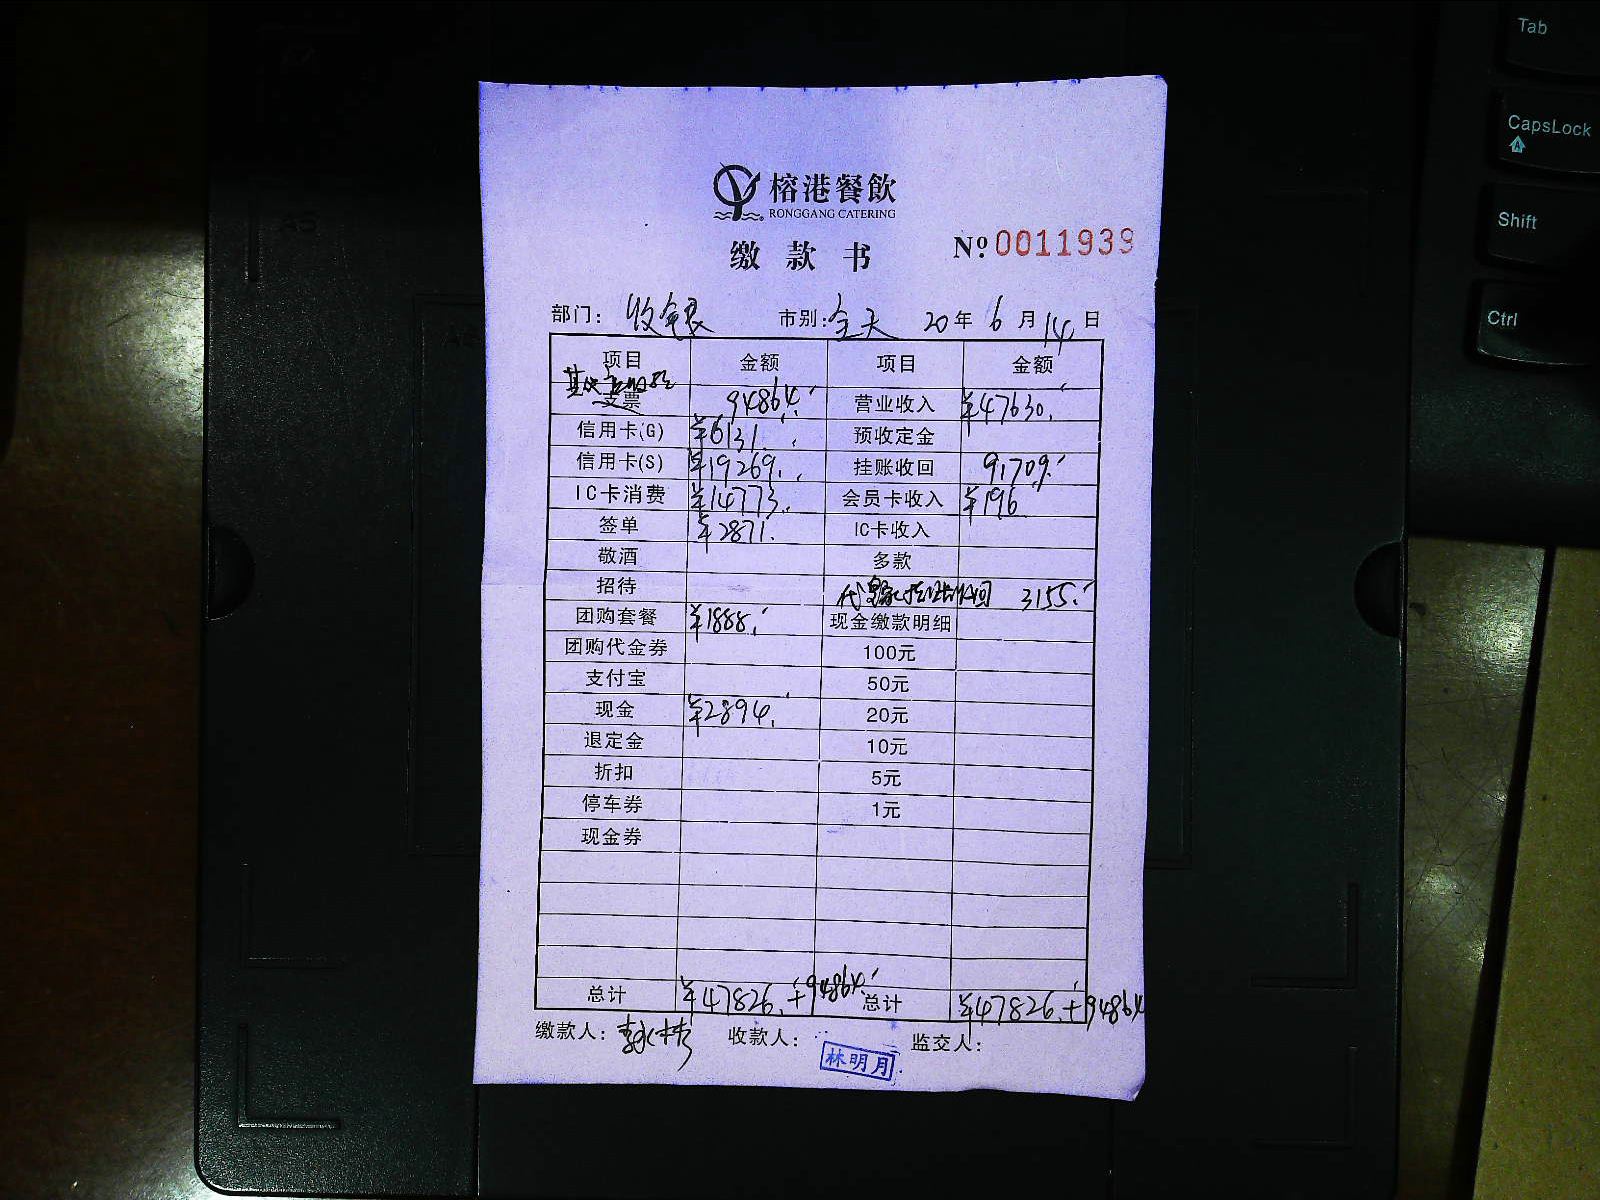 榕港餐飲
RONGGANG CATERING
缴款书 №0011939
部门：收银 市别：全天 20年6月14日
项目 金额 项目 金额
支票 94864. 营业收入 ¥47630.
信用卡(G) ¥6131. 预收定金
信用卡(S) ¥19269. 挂账收回 9,709.
IC卡消费 ¥14773. 会员卡收入 ¥196
签单 ¥2871. IC卡收入
敬酒 多款
招待 3155.
团购套餐 ¥1888. 现金缴款明细
团购代金券 100元
支付宝 50元
现金 ¥2894. 20元
退定金 10元
折扣 5元
停车券 1元
现金券
总计 ¥47826.+94864. 总计 ¥47826.+94864
缴款人： 收款人： 林明月 监交人：
Tab
CapsLock
Shift
Ctrl